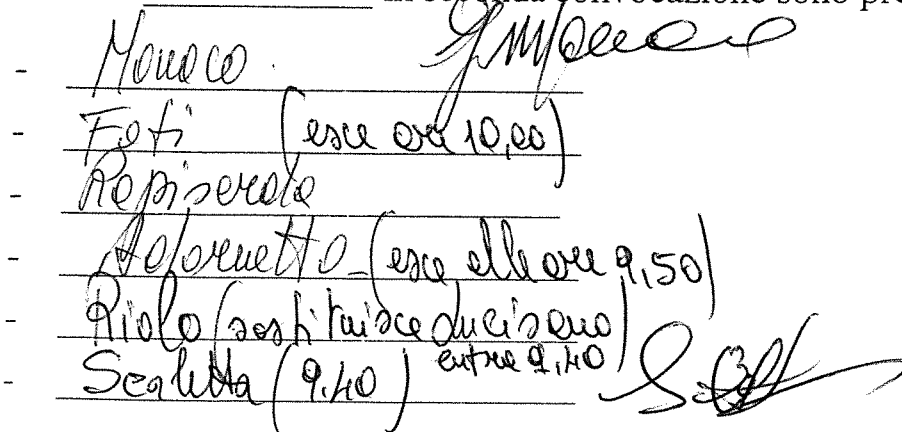 in seconda convocazione sono pre
- Monaco
- Foti (esce ore 10,00)
- Rapisarda
- Adornetto - (esce alle ore 9,50)
- Riolo (sostituisce Lucisano)
entra 9,40
- Scaletta (9.40)